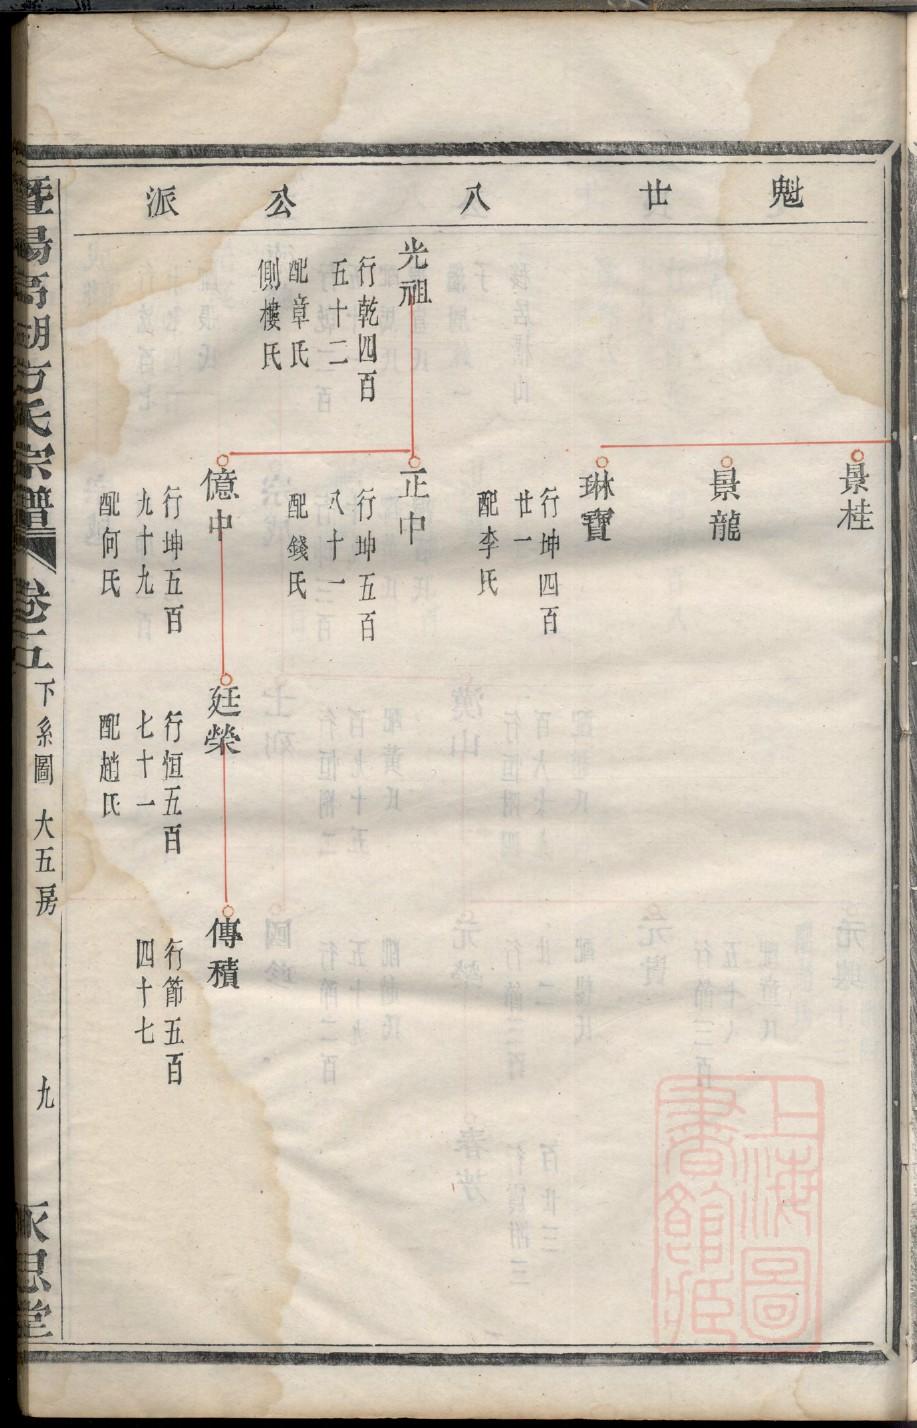 魁廿八公派
景桂
景龍
琳寶
行坤四百
廿一
配李氏
光祖
行乾四百
五十二
配章氏
側樓氏
正中
行坤五百
八十一
配錢氏
億中
行坤五百
九十九
配何氏
廷榮
行恒五百
七十一
配趙氏
傳積
行節五百
四十七
暨陽高湖方氏宗譜
卷五
下系圖
大五房
九
永思堂
上海圖
書館藏